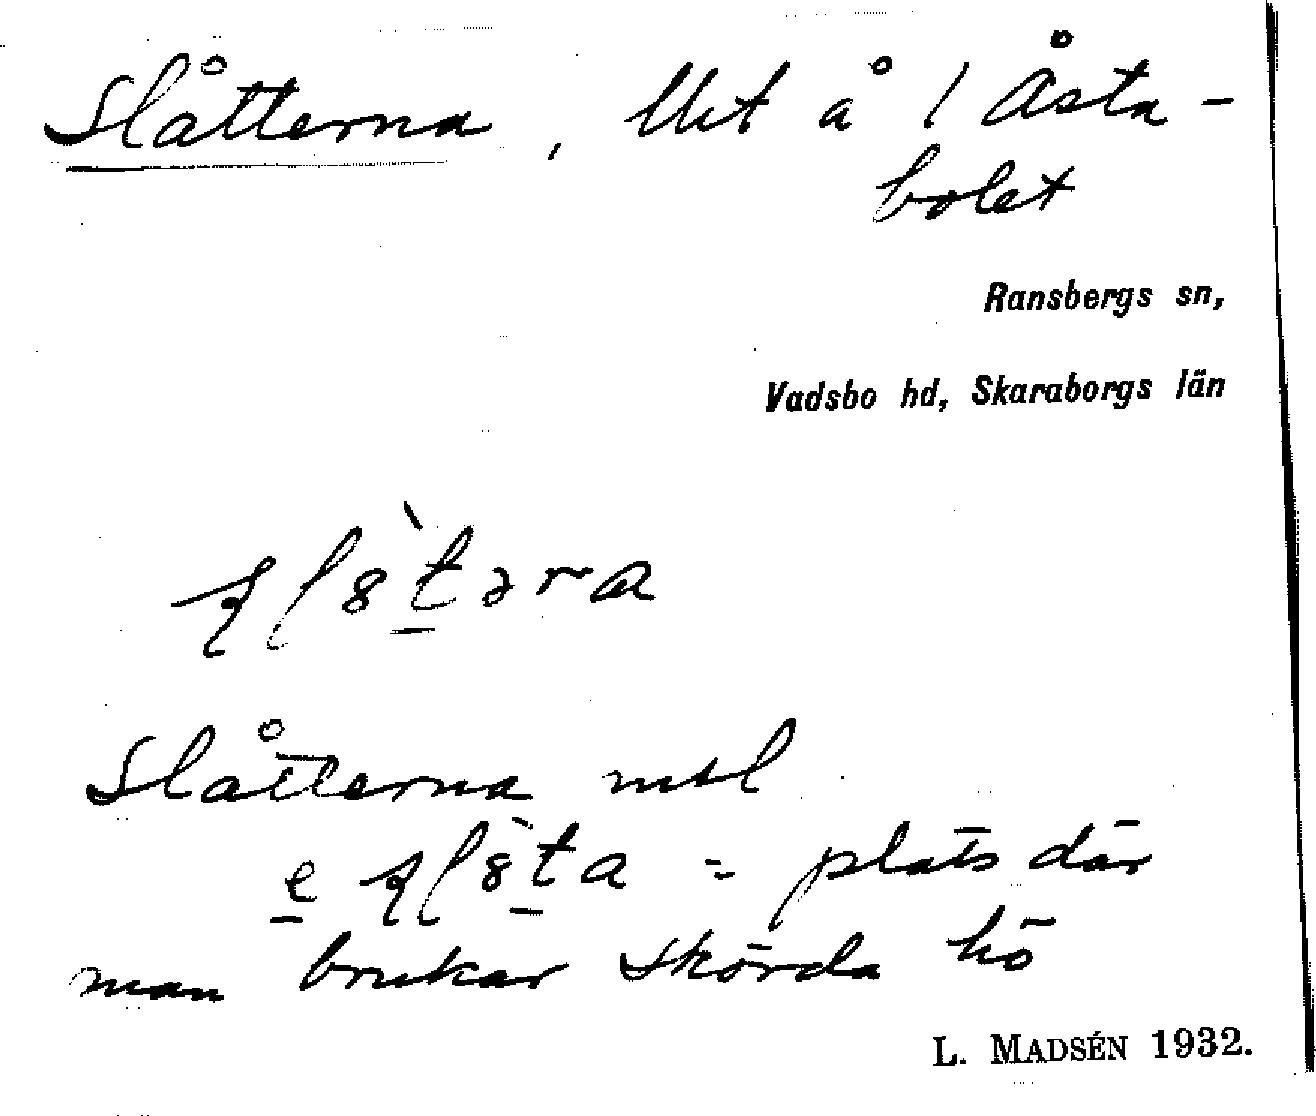 Slåtterna, Utet å 1 Åsta-
bolet
Ransbergs sn,
Vadsbo hd, Skaraborgs län
Slåtterna
= plats där
man brukar skörda hö
L. MADSÉN 1932.